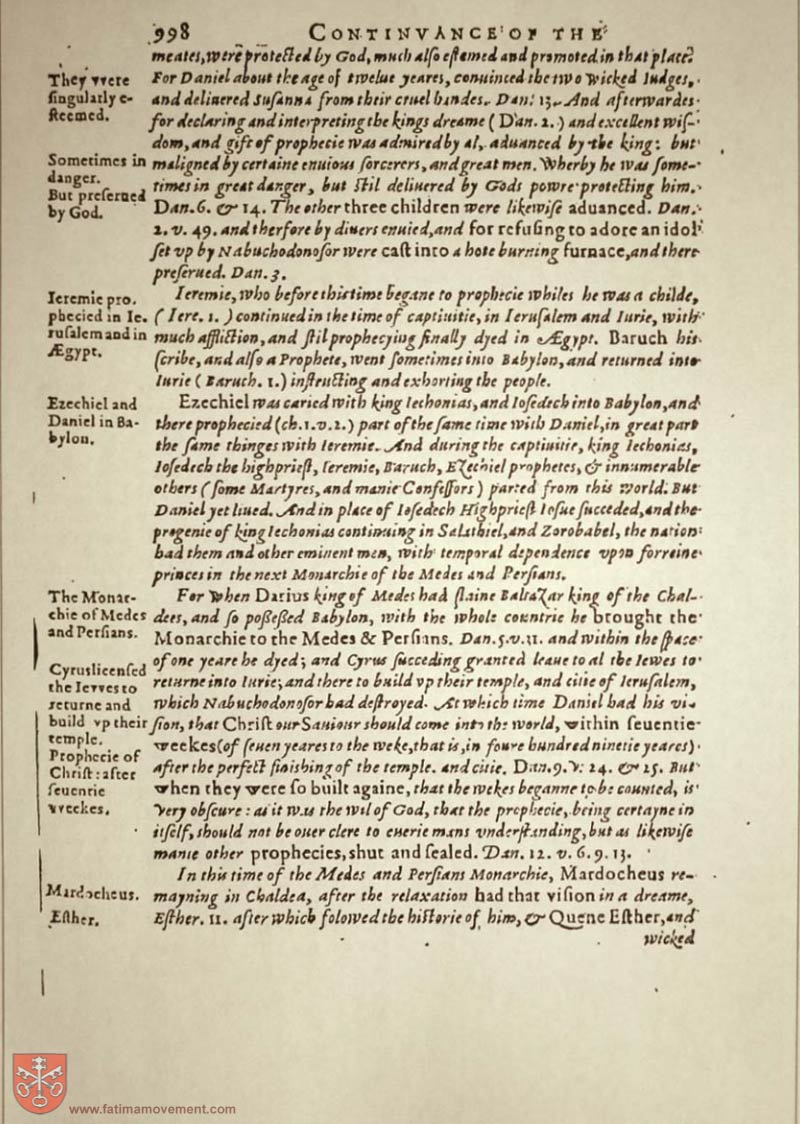 998 CONTINVANCE OF THE
meates, were protected by God, much also estemed and promoted in that place.
They were
singularly e-
steemed.
For Daniel about the age of twelue yeares, conuinced the two wicked Iudges,
and deliuered Susanna from their cruel handes. Dan. 13. And afterwardes
for declaring and interpreting the kings dreame (Dan. 2.) and excellent wis-
dom, and gift of prophecie was admired by al, aduanced by the king: but
Sometimes in
danger.
But preserued
by God.
maligned by certaine enuious sorcerers, and great men. Wherby he was some-
times in great danger, but stil deliuered by Gods powre protecting him.
Dan. 6. & 14. The other three children were likewise aduanced. Dan.
2. v. 49. and therfore by diuers enuied, and for refusing to adore an idol
set vp by Nabuchodonosor were cast into a hote burning furnace, and there
preserued. Dan. 3.
Ieremie pro
phecied in Ie.
rusalem and in
Ægypt.
Ieremie, who before this time begane to prophecie whiles he was a childe,
(Iere. 1.) continued in the time of captiuitie, in Ierusalem and Iurie, with
much affliction, and stil prophecying finally dyed in Ægypt. Baruch his
scribe, and also a Prophete, went sometimes into Babylon, and returned into
Iurie (Baruch. 1.) instructing and exhorting the people.
Ezechiel and
Daniel in Ba-
bylon.
Ezechiel was caried with king Iechonias, and Iosedech into Babylon, and
there prophecied (ch. 1. v. 2.) part of the same time with Daniel, in great part
the same thinges with Ieremie. And during the captiuitie, king Iechonias,
Iosedech the highpriest, Ieremie, Baruch, Ezechiel prophetes, & innumerable
others (some Martyres, and manie Confessors) parted from this world. But
Daniel yet liued. And in place of Iosedech Highpriest Iosue succeded, and the
progenie of king Iechonias continuing in Salathiel, and Zorobabel, the nation
had them and other eminent men, with temporal dependence vpon forreine
princes in the next Monarchie of the Medes and Persians.
The Monar-
chie of Medes
and Persians.
For when Darius king of Medes had slaine Baltazar king of the Chal-
dees, and so possessed Babylon, with the whole countrie he brought the
Monarchie to the Medes & Persians. Dan. 5. v. 11. and within the space
Cyrus licensed
the Iewes to
returne and
build vp their
temple.
of one yeare he dyed; and Cyrus succeding granted leaue to al the Iewes to
returne into Iurie; and there to build vp their temple, and citie of Ierusalem,
which Nabuchodonosor had destroyed. At which time Daniel had his vi-
sion, that Christ our Sauiour should come into the world, within seuentie
Prophecie of
Christ: after
seuentie
weekes.
weekes (of seuen yeares to the weke, that is, in foure hundred ninetie yeares)
after the perfect finishing of the temple. and citie. Dan. 9. v. 24. & 25. But
when they were so built againe, that the wekes beganne to be counted, is
very obscure: as it was the wil of God, that the prophecie, being certayne in
itself, should not be ouer clere to euerie mans vnderstanding, but as likewise
manie other prophecies, shut and sealed. Dan. 12. v. 6. 9. 13.
Mardocheus.
In this time of the Medes and Persians Monarchie, Mardocheus re-
mayning in Chaldea, after the relaxation had that vision in a dreame,
Esther.
Esther. 11. after which folowed the historie of him, & Quene Esther, and
wicked
www.fatimamovement.com